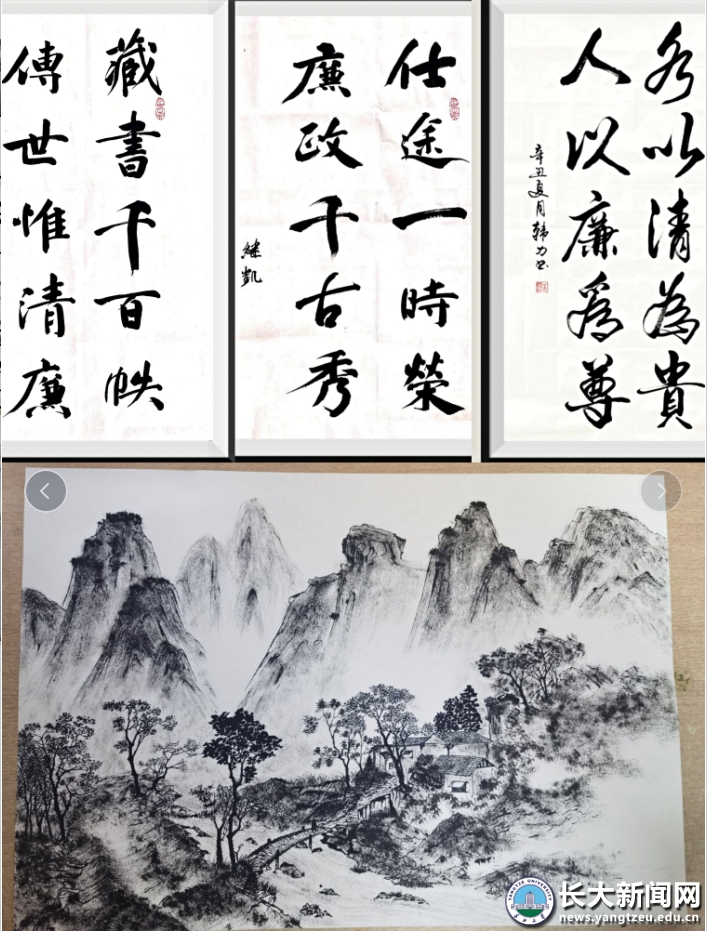 藏書千百帙
傳世惟清廉
仕途一時榮
廉政千古秀
继凯
水以清為貴
人以廉為尊
辛丑夏月韩力书
YANGTZE UNIVERSITY
长大新闻网
news.yangtzeu.edu.cn